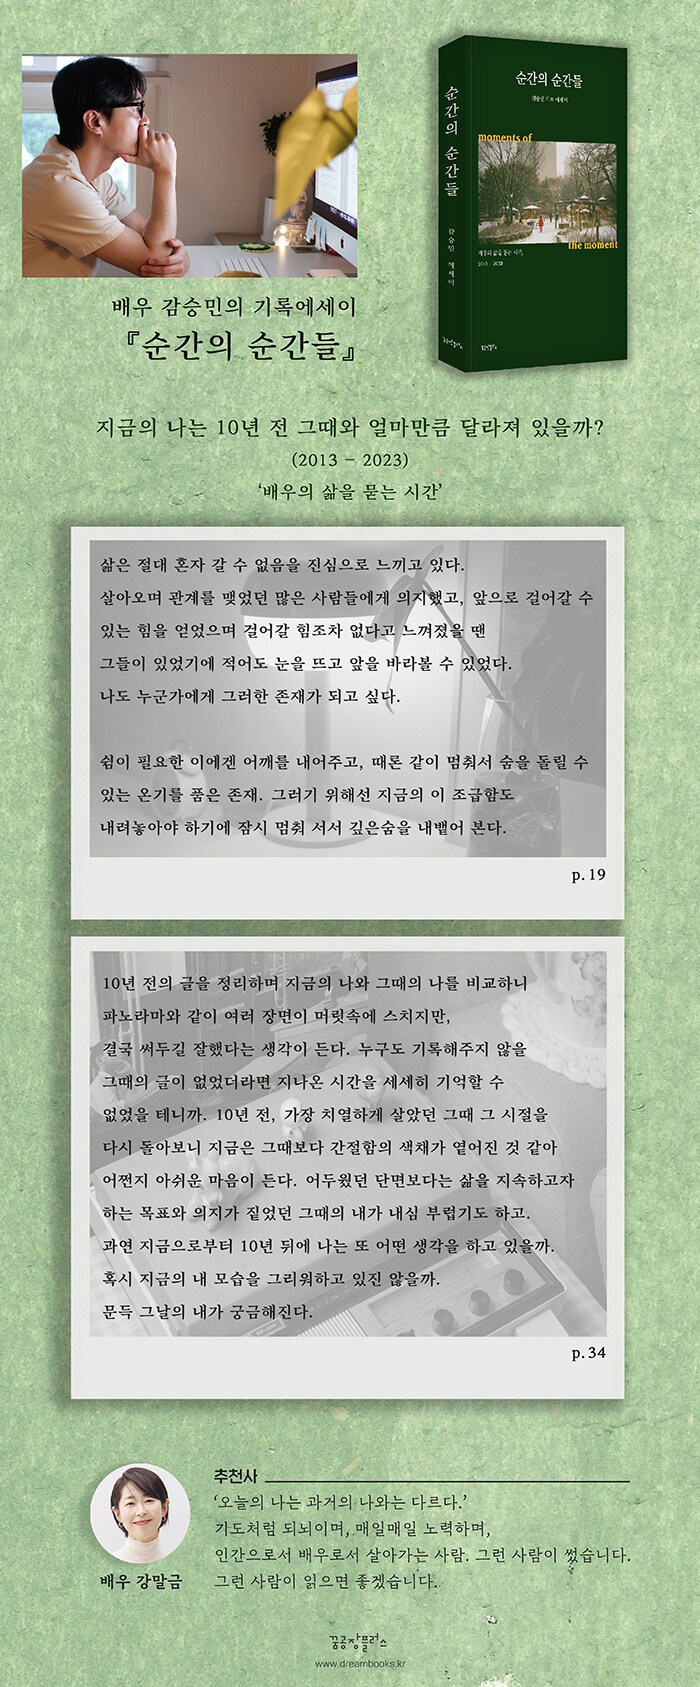 순간의 순간들
감승민 에세이
꿈공장플러스
순간의 순간들
감승민 기록 에세이
moments of
the moment
배우의 삶을 묻는 시간,
2013 - 2023
꿈공장플러스
배우 감승민의 기록에세이
『순간의 순간들』
지금의 나는 10년 전 그때와 얼마만큼 달라져 있을까?
(2013 - 2023)
‘배우의 삶을 묻는 시간’
삶은 절대 혼자 갈 수 없음을 진심으로 느끼고 있다.
살아오며 관계를 맺었던 많은 사람들에게 의지했고, 앞으로 걸어갈 수
있는 힘을 얻었으며 걸어갈 힘조차 없다고 느껴졌을 땐
그들이 있었기에 적어도 눈을 뜨고 앞을 바라볼 수 있었다.
나도 누군가에게 그러한 존재가 되고 싶다.
쉼이 필요한 이에겐 어깨를 내어주고, 때론 같이 멈춰서 숨을 돌릴 수
있는 온기를 품은 존재. 그러기 위해선 지금의 이 조급함도
내려놓아야 하기에 잠시 멈춰 서서 깊은숨을 내뱉어 본다.
p.19
10년 전의 글을 정리하며 지금의 나와 그때의 나를 비교하니
파노라마와 같이 여러 장면이 머릿속에 스치지만,
결국 써두길 잘했다는 생각이 든다. 누구도 기록해주지 않을
그때의 글이 없었더라면 지나온 시간을 세세히 기억할 수
없었을 테니까. 10년 전, 가장 치열하게 살았던 그때 그 시절을
다시 돌아보니 지금은 그때보다 간절함의 색채가 옅어진 것 같아
어쩐지 아쉬운 마음이 든다. 어두웠던 단면보다는 삶을 지속하고자
하는 목표와 의지가 짙었던 그때의 내가 내심 부럽기도 하고.
과연 지금으로부터 10년 뒤에 나는 또 어떤 생각을 하고 있을까.
혹시 지금의 내 모습을 그리워하고 있진 않을까.
문득 그날의 내가 궁금해진다.
p.34
추천사
‘오늘의 나는 과거의 나와는 다르다.’
기도처럼 되뇌이며, 매일매일 노력하며,
인간으로서 배우로서 살아가는 사람. 그런 사람이 썼습니다.
그런 사람이 읽으면 좋겠습니다.
배우 강말금
꿈공장플러스
www.dreambooks.kr